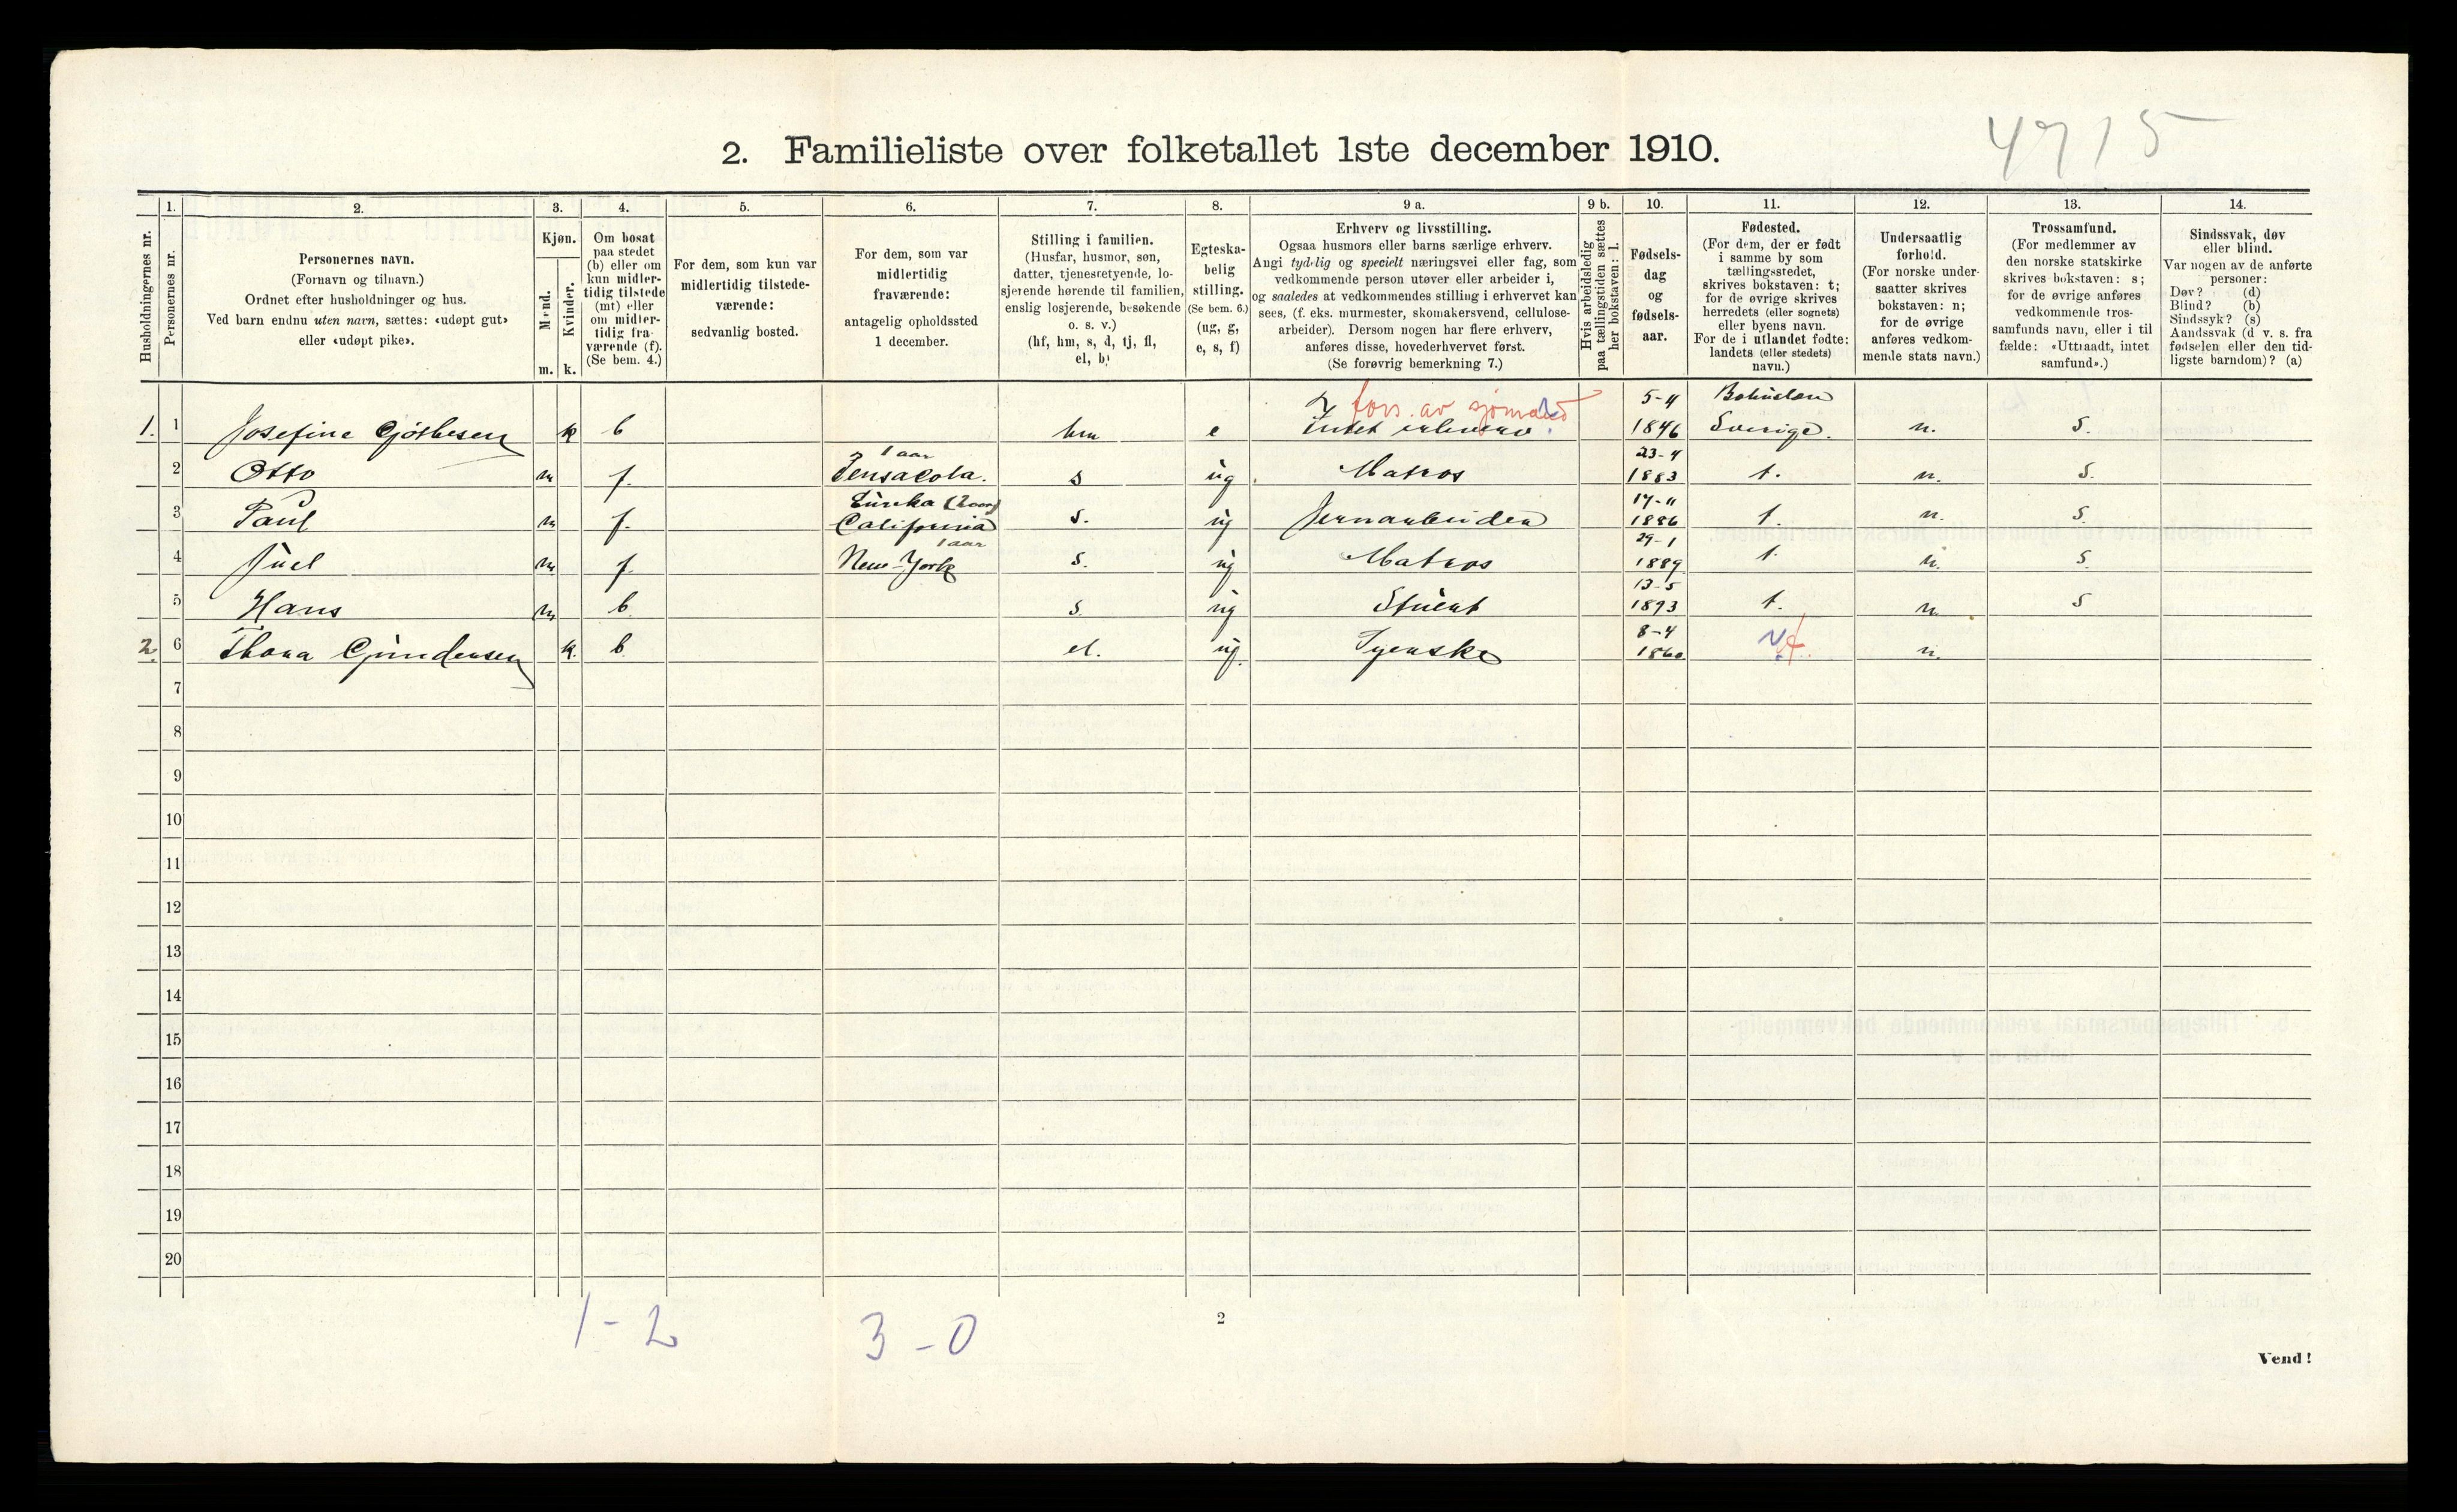 4715
2. Familieliste over folketallet 1ste december 1910.
1. 2. 3. 4. 5. 6. 7. 8. 9 a. 9 b. 10. 11. 12. 13. 14.
Husholdningernes nr.
Personernes nr.
Personernes navn.
(Fornavn og tilnavn.)
Ordnet efter husholdninger og hus.
Ved barn endnu uten navn, sættes: «udøpt gut»
eller «udøpt pike».
Kjøn.
Mænd.
Kvinder.
m. k.
Om bosat
paa stedet
(b) eller om
kun midler-
tidig tilstede
(mt) eller
om midler-
tidig fra-
værende (f).
(Se bem. 4.)
For dem, som kun var
midlertidig tilstede-
værende:
sedvanlig bosted.
For dem, som var
midlertidig
fraværende:
antagelig opholdssted
1 december.
Stilling i familien.
(Husfar, husmor, søn,
datter, tjenestetyende, lo-
sjerende hørende til familien,
enslig losjerende, besøkende
o. s. v.)
(hf, hm, s, d, tj, fl,
el, b)
Egteska-
belig
stilling.
(Se bem. 6.)
(ug, g,
e, s, f)
Erhverv og livsstilling.
Ogsaa husmors eller barns særlige erhverv.
Angi tydelig og specielt næringsvei eller fag, som
vedkommende person utøver eller arbeider i,
og saaledes at vedkommendes stilling i erhvervet kan
sees, (f. eks. murmester, skomakersvend, cellulose-
arbeider). Dersom nogen har flere erhverv,
anføres disse, hovederhvervet først.
(Se forøvrig bemerkning 7.)
Hvis arbeidsledig
paa tællingstiden sættes
her bokstaven: l.
Fødsels-
dag
og
fødsels-
aar.
Fødested.
(For dem, der er født
i samme by som
tællingsstedet,
skrives bokstaven: t;
for de øvrige skrives
herredets (eller sognets)
eller byens navn.
For de i utlandet fødte:
landets (eller stedets)
navn.)
Undersaatlig
forhold.
(For norske under-
saatter skrives
bokstaven: n;
for de øvrige
anføres vedkom-
mende stats navn.)
Trossamfund.
(For medlemmer av
den norske statskirke
skrives bokstaven: s;
for de øvrige anføres
vedkommende tros-
samfunds navn, eller i til
fælde: «Uttraadt, intet
samfund».)
Sindssvak, døv
eller blind.
Var nogen av de anførte
personer:
Døv? (d)
Blind? (b)
Sindssyk? (s)
Aandssvak (d v. s. fra
fødselen eller den tid-
ligste barndom)? (a)
fors. av sjømænd 5-4 Bohuslen
1. 1 Josefine k b hm e Intet erhverv. 1846 Sverige. n. s.
1 aar 23-4
2 Otto m f. Pensacola. s ug Matros 1883 t. n. s.
Eureka (2 aar) 17-11
3 Paul m f. California s. ug Jernarbeider 1886 t. n. s.
1 aar 29-1
4 Juel m f. New-York s. ug Matros 1889 t. n. s.
13-5
5 Hans m b s. ug 1893 t. n. s
8-4
2. 6 Thora Gundersen k. b el. ug. Syerske 1860 t. n.
7
8
9
10
11
12
13
14
15
16
17
18
19
20
1-2 3-0
2
Vend!